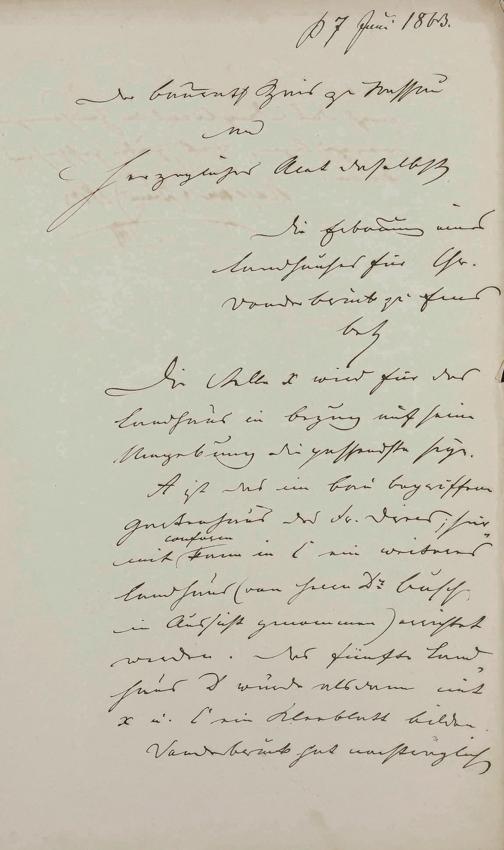 p 7 Juni 1863.
der baurath Zais zu Nassau
an
Herzogliches Amt daselbst
Die Erbauung eines
Landhauses für Chr.
Vonderbrück zu Ems
betr
Die Stelle x wird für das
Landhaus in bezug auf seine
Umgebung die passendste sein.
A ist das im bau begriffene
Gartenhaus des Dr. , für
conform
mit kann in C ein weiteres
Landhaus (von Herrn Dr. Busch
in Aussicht genommen) errichtet
werden. Das fünfte Land
haus D würde alsdann mit
x u. C ein Kleeblatt bilden.
Vonderbrück hat nachträglich